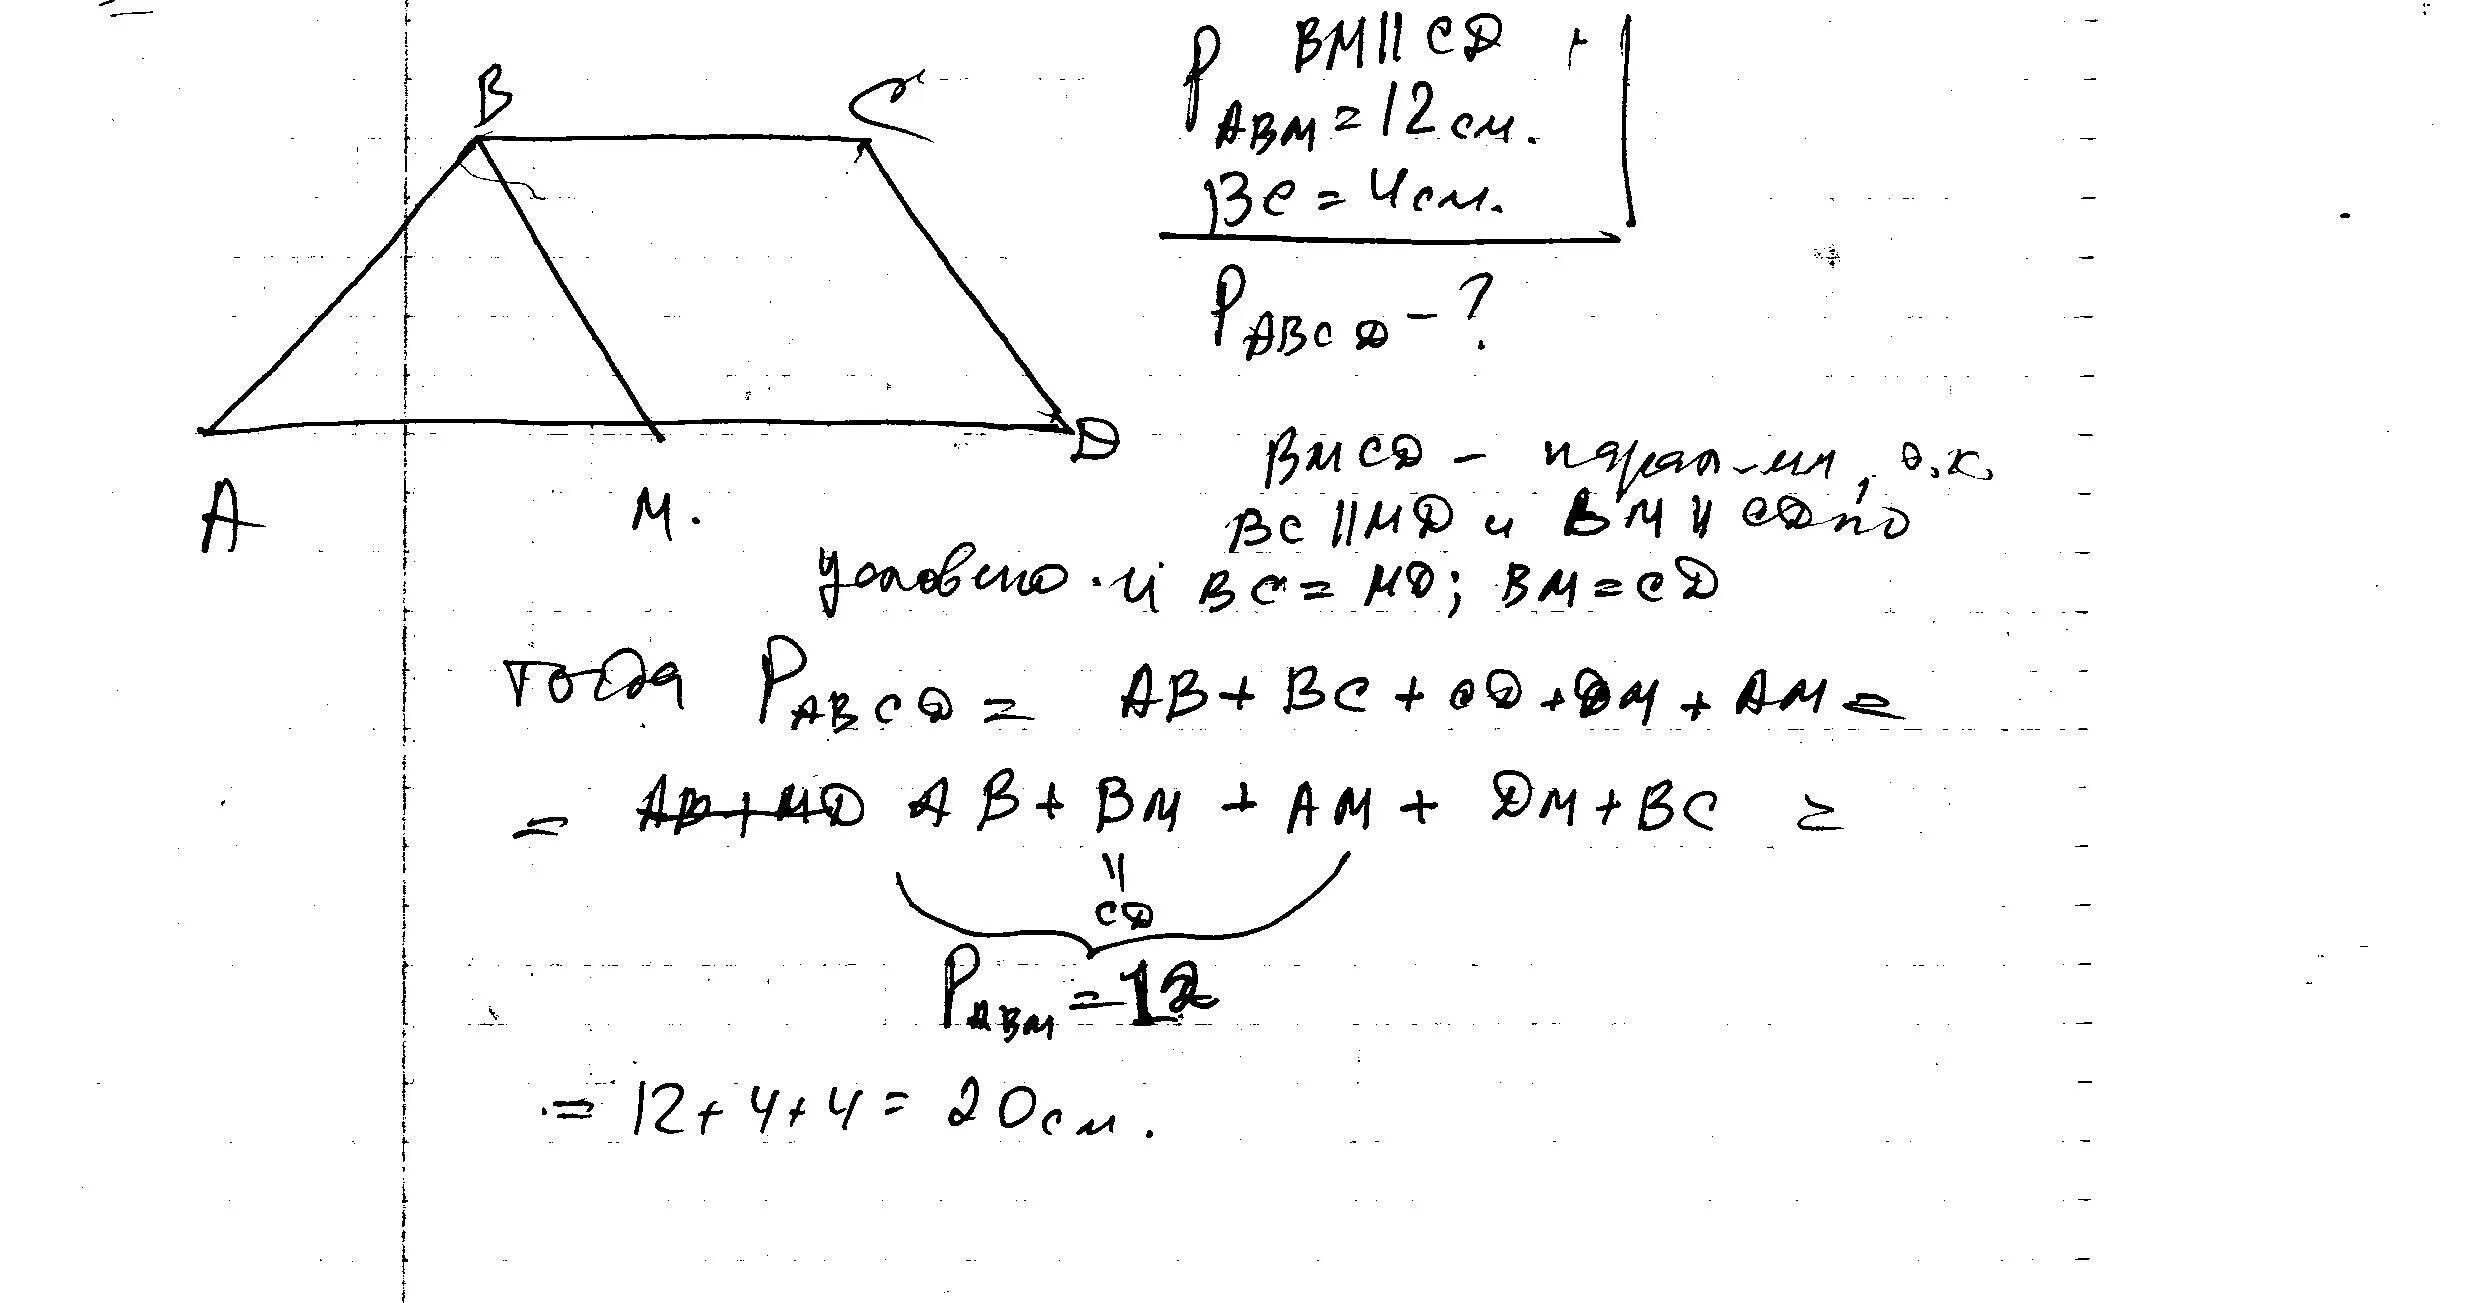 B C
A M. D
BM || CD
P ABM = 12 см.
BC = 4 см.
P ABCD - ?
BMCD - парал-мм, т.к.
BC || MD и BM || CD по
условию и BC = MD; BM = CD
тогда P ABCD = AB + BC + CD + DM + AM =
= AB + MD AB + BM + AM + DM + BC =
||
CD
P ABM = 12
= 12 + 4 + 4 = 20 см.